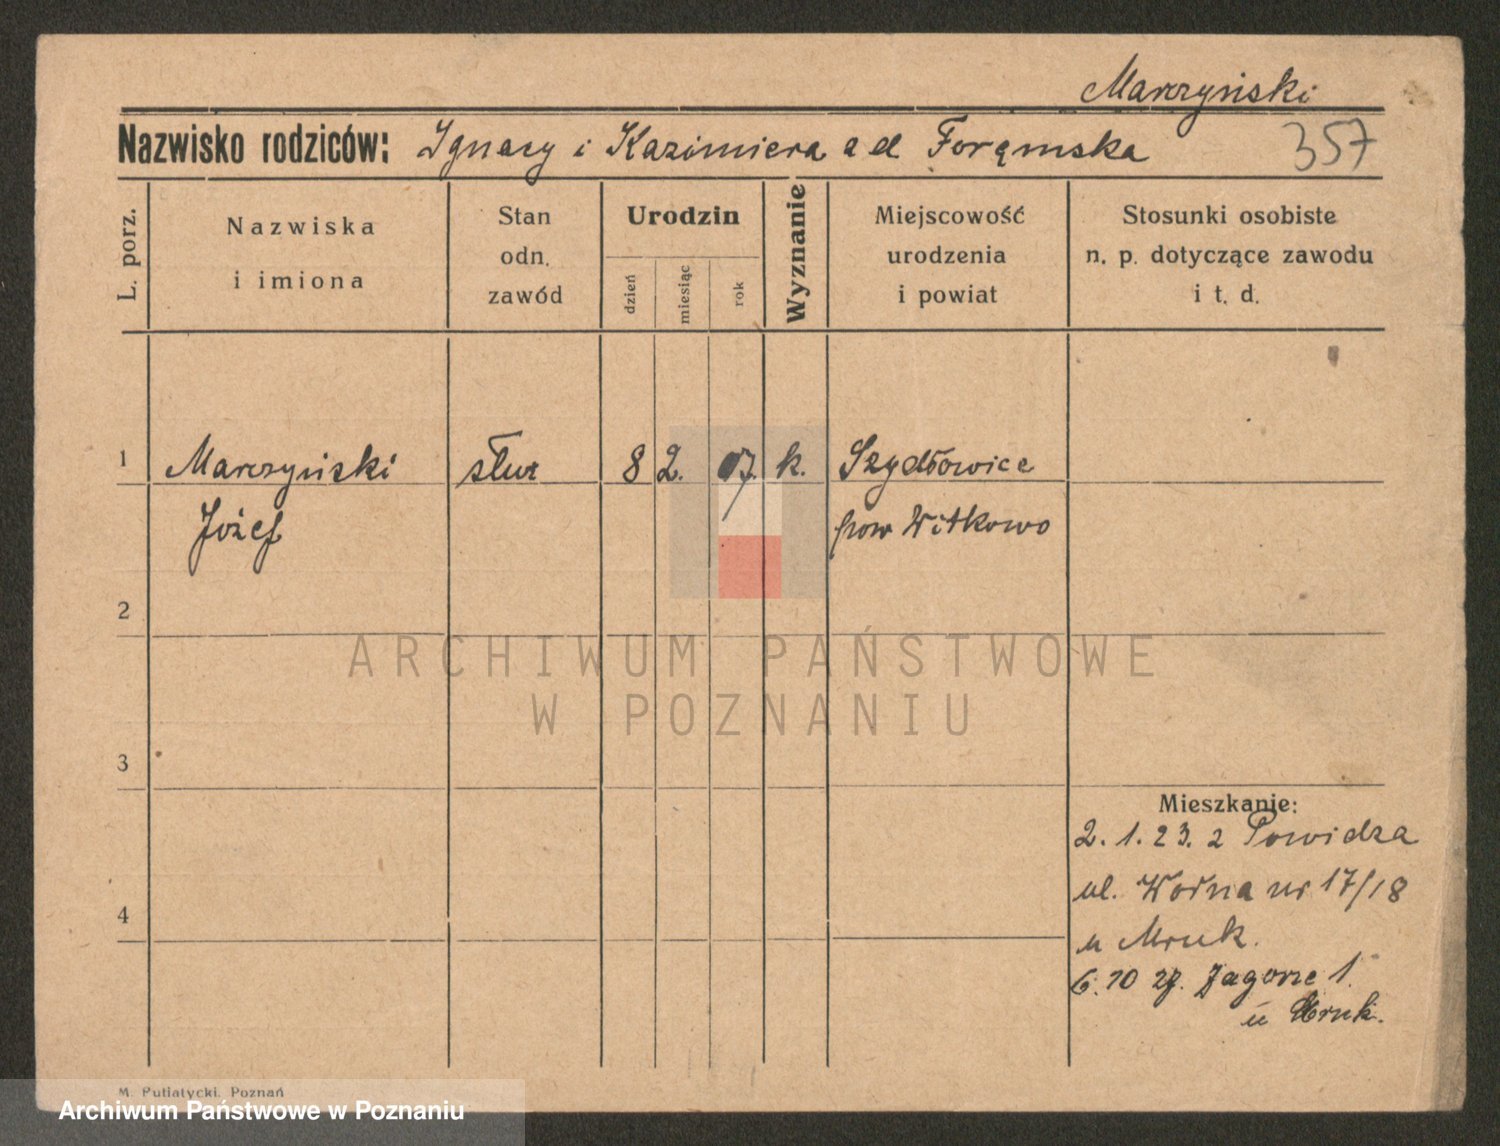 Marczyński
Nazwisko rodziców: Ignacy i Kazimiera z d Foręmska
357
L. porz.
Nazwiska
i imiona
Stan
odn.
zawód
Urodzin
dzień
miesiąc
rok
Wyznanie
Miejscowość
urodzenia
i powiat
Stosunki osobiste
n. p. dotyczące zawodu
i t. d.
1 Marczyński służ 8 2. 07. k. Szydłowice
Józef pow Witkowo
2
3
4
Mieszkanie:
2. 1. 23. z Powidza
ul. Wodna nr 17/18
u Mruk.
6. 10 27. Zagorze 1.
u Mruk.
M. Putiatycki, Poznań
ARCHIWUM PAŃSTWOWE
W POZNANIU
Archiwum Państwowe w Poznaniu